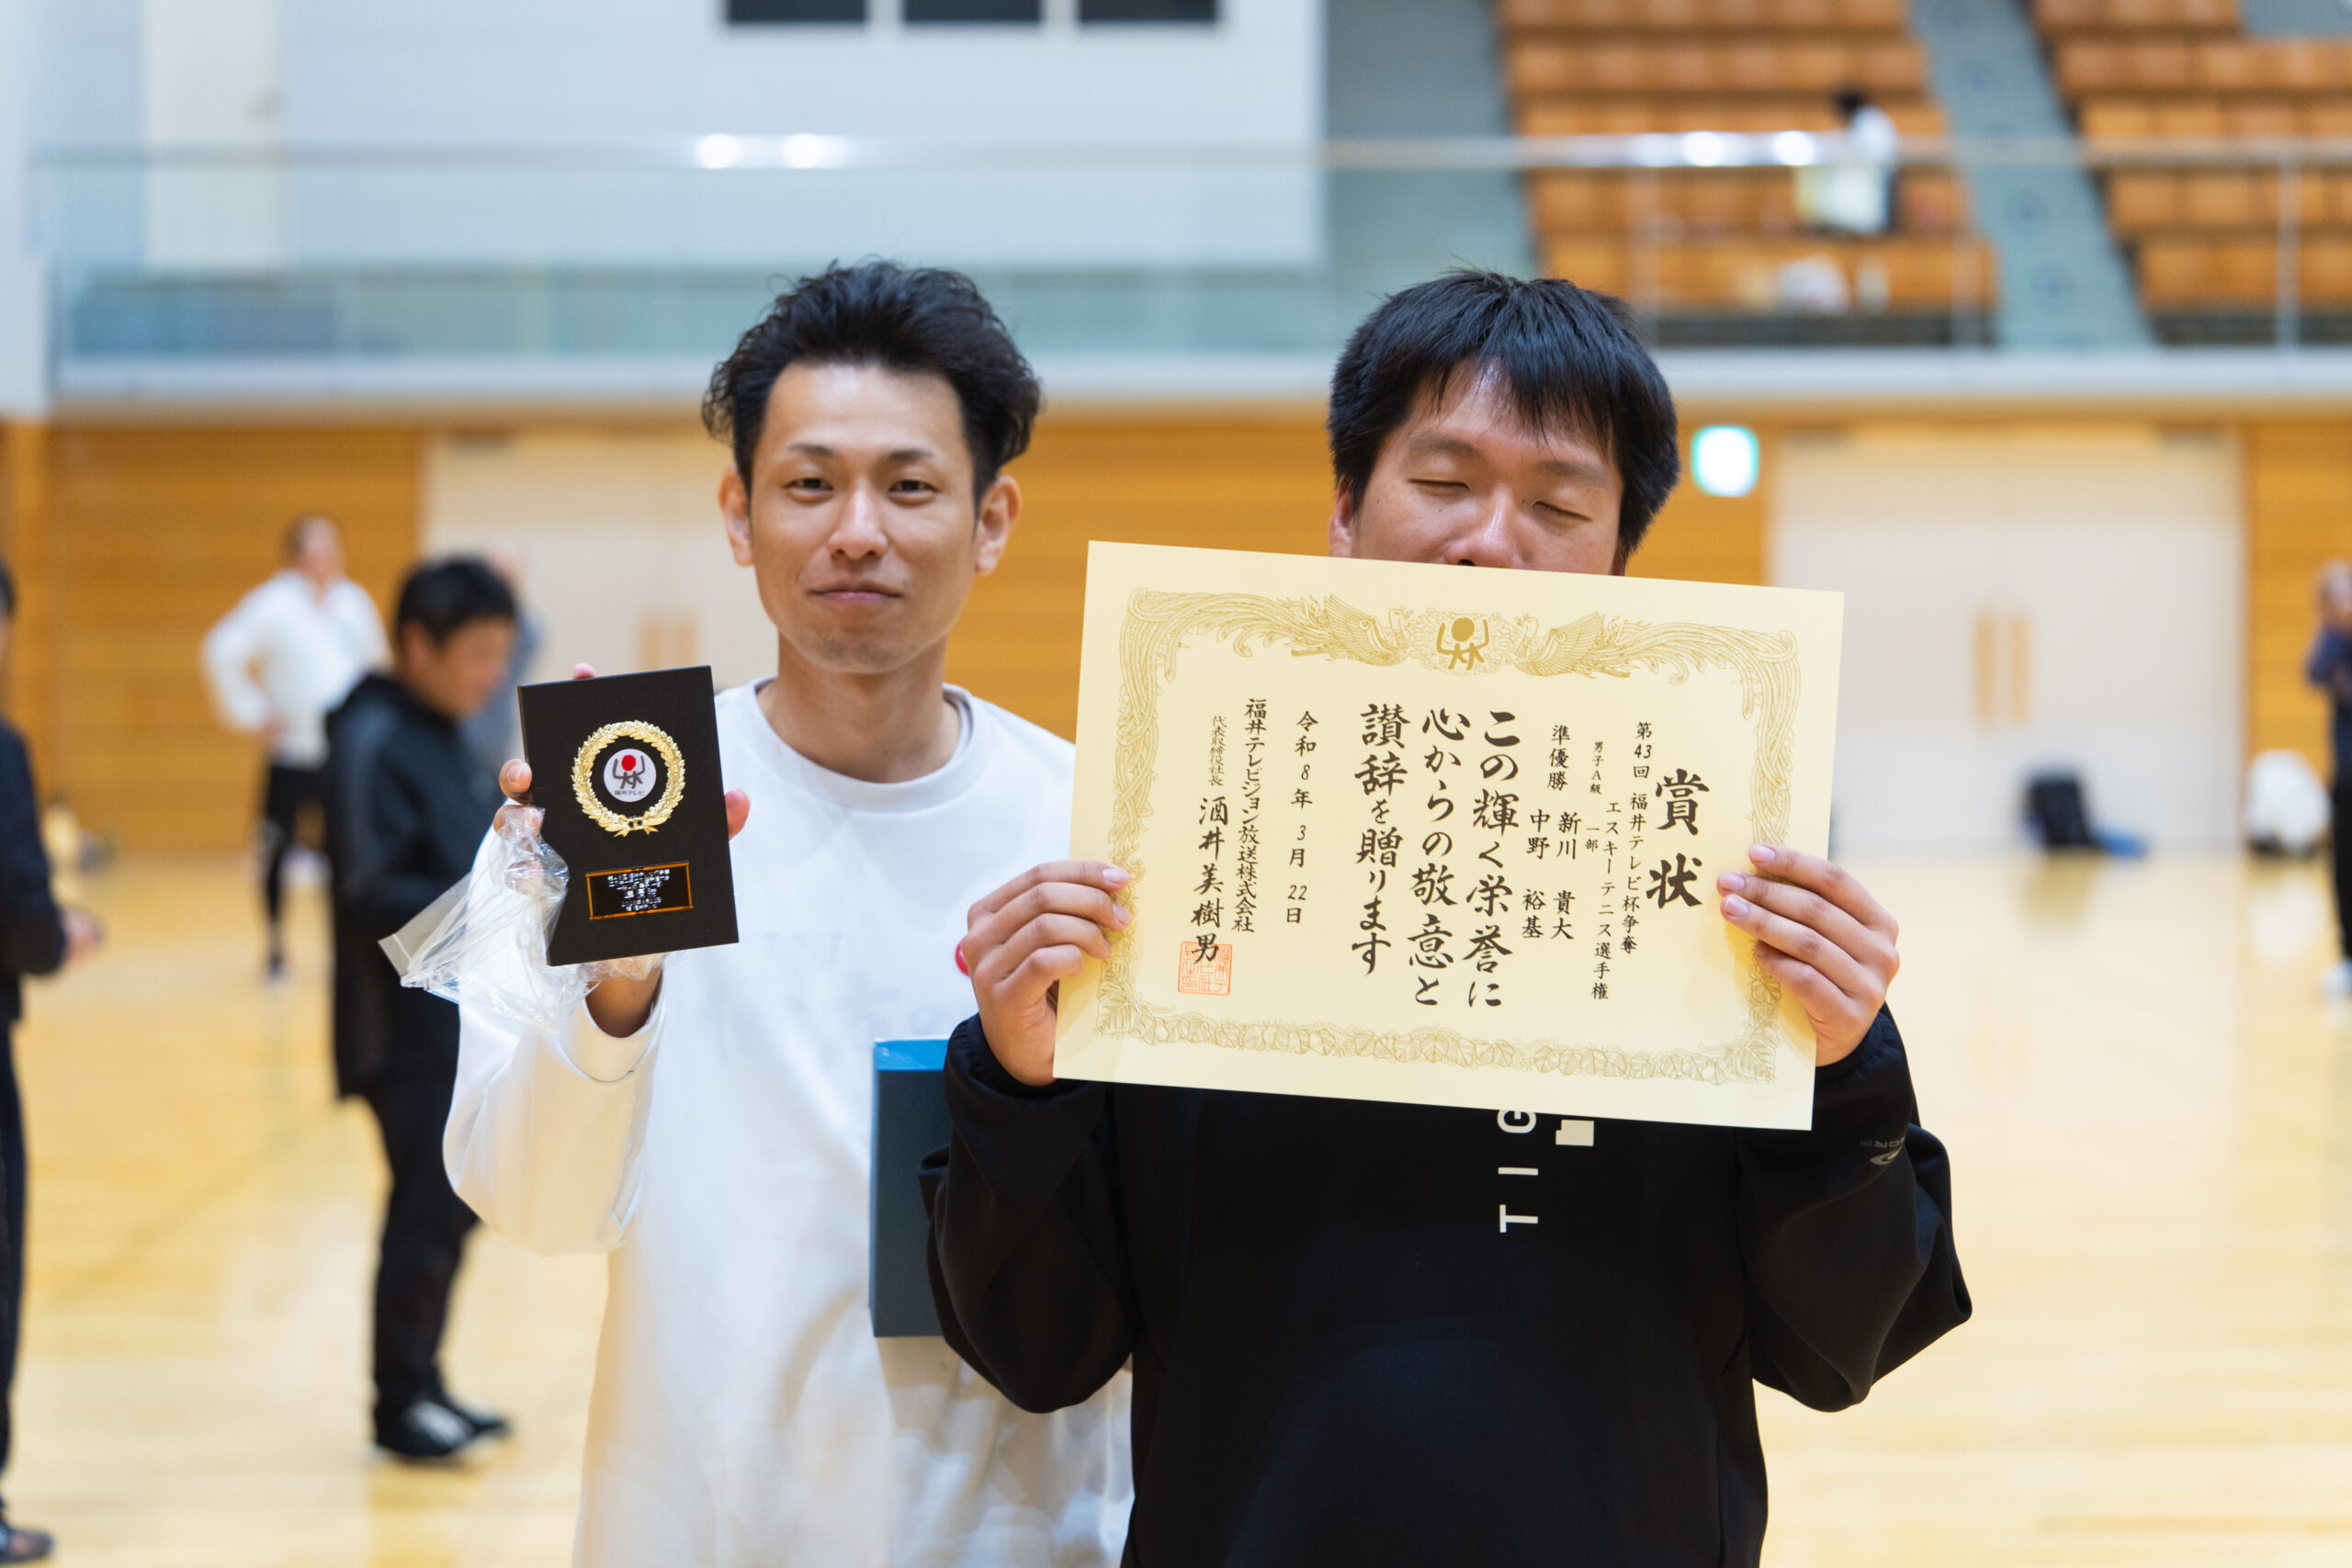 賞状
第43回 福井テレビ杯争奪
エスキーテニス選手権
男子A級 一部
準優勝
新川 貴大
中野 裕基
この輝く栄誉に
心からの敬意と
讃辞を贈ります
令和8年3月22日
福井テレビジョン放送株式会社
代表取締役社長 酒井美樹男
福井テレビ
TIG